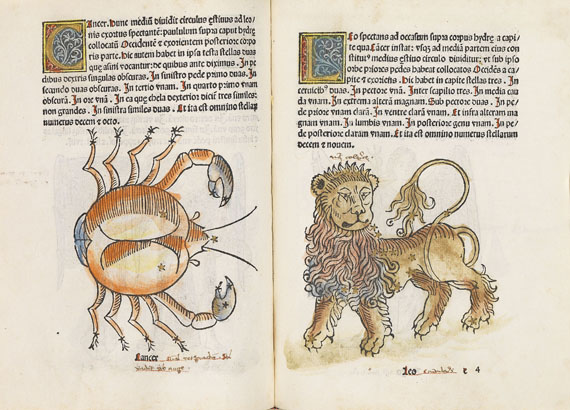 Cancer. hunc mediũ diuidit circulus estiuus ad leo-
nis exortus spectantẽ: paululum supra caput hydrę
collocatũ Occidentẽ & exorientem posteriore corpo
ris parte. Hic autem habet in ipsa testa stellas duas
que asini vocantur: de quibus ante diximus. In pe-
dibus dextris singulas obscuras. In sinistro pede primo duas. In
secundo duas obscuras. In tertio vnam. In quarto primo vnam
obscurã. In ore vnã. In ea que chela dexterior dicit̃ tres similes:
non grandes. In sinistra similes duas. Et ita est omnino stellarũ
numerus decem & octo.
Cancer
Leo spectans ad occasum supra corpus hydrę a capi-
te qua Cãcer instat: vsq̃ ad mediã partem eius con
stitu⁹ medius ęstiuo circulo diuiditur: vt sub ipso
orbe priores pedes habeat collocatos Occidẽs a ca-
pite & exoriẽs. Hic habet in capite stellas tres. In
ceruicib⁹ duas. In pectore vnã. Inter scapilio tres. In media cau
da vnam. In extrema alterã magnam. Sub pectore duas. In pe-
de priore vnam clarã. In ventre clarã vnam. Et infra alteram ma
gnam vnam. In lumbis vnam. In posteriore genu vnam. In pe-
de posteriore claram vnam. Et ita est omnino numerus stellarum
decem & nouem.
Leo
e 4